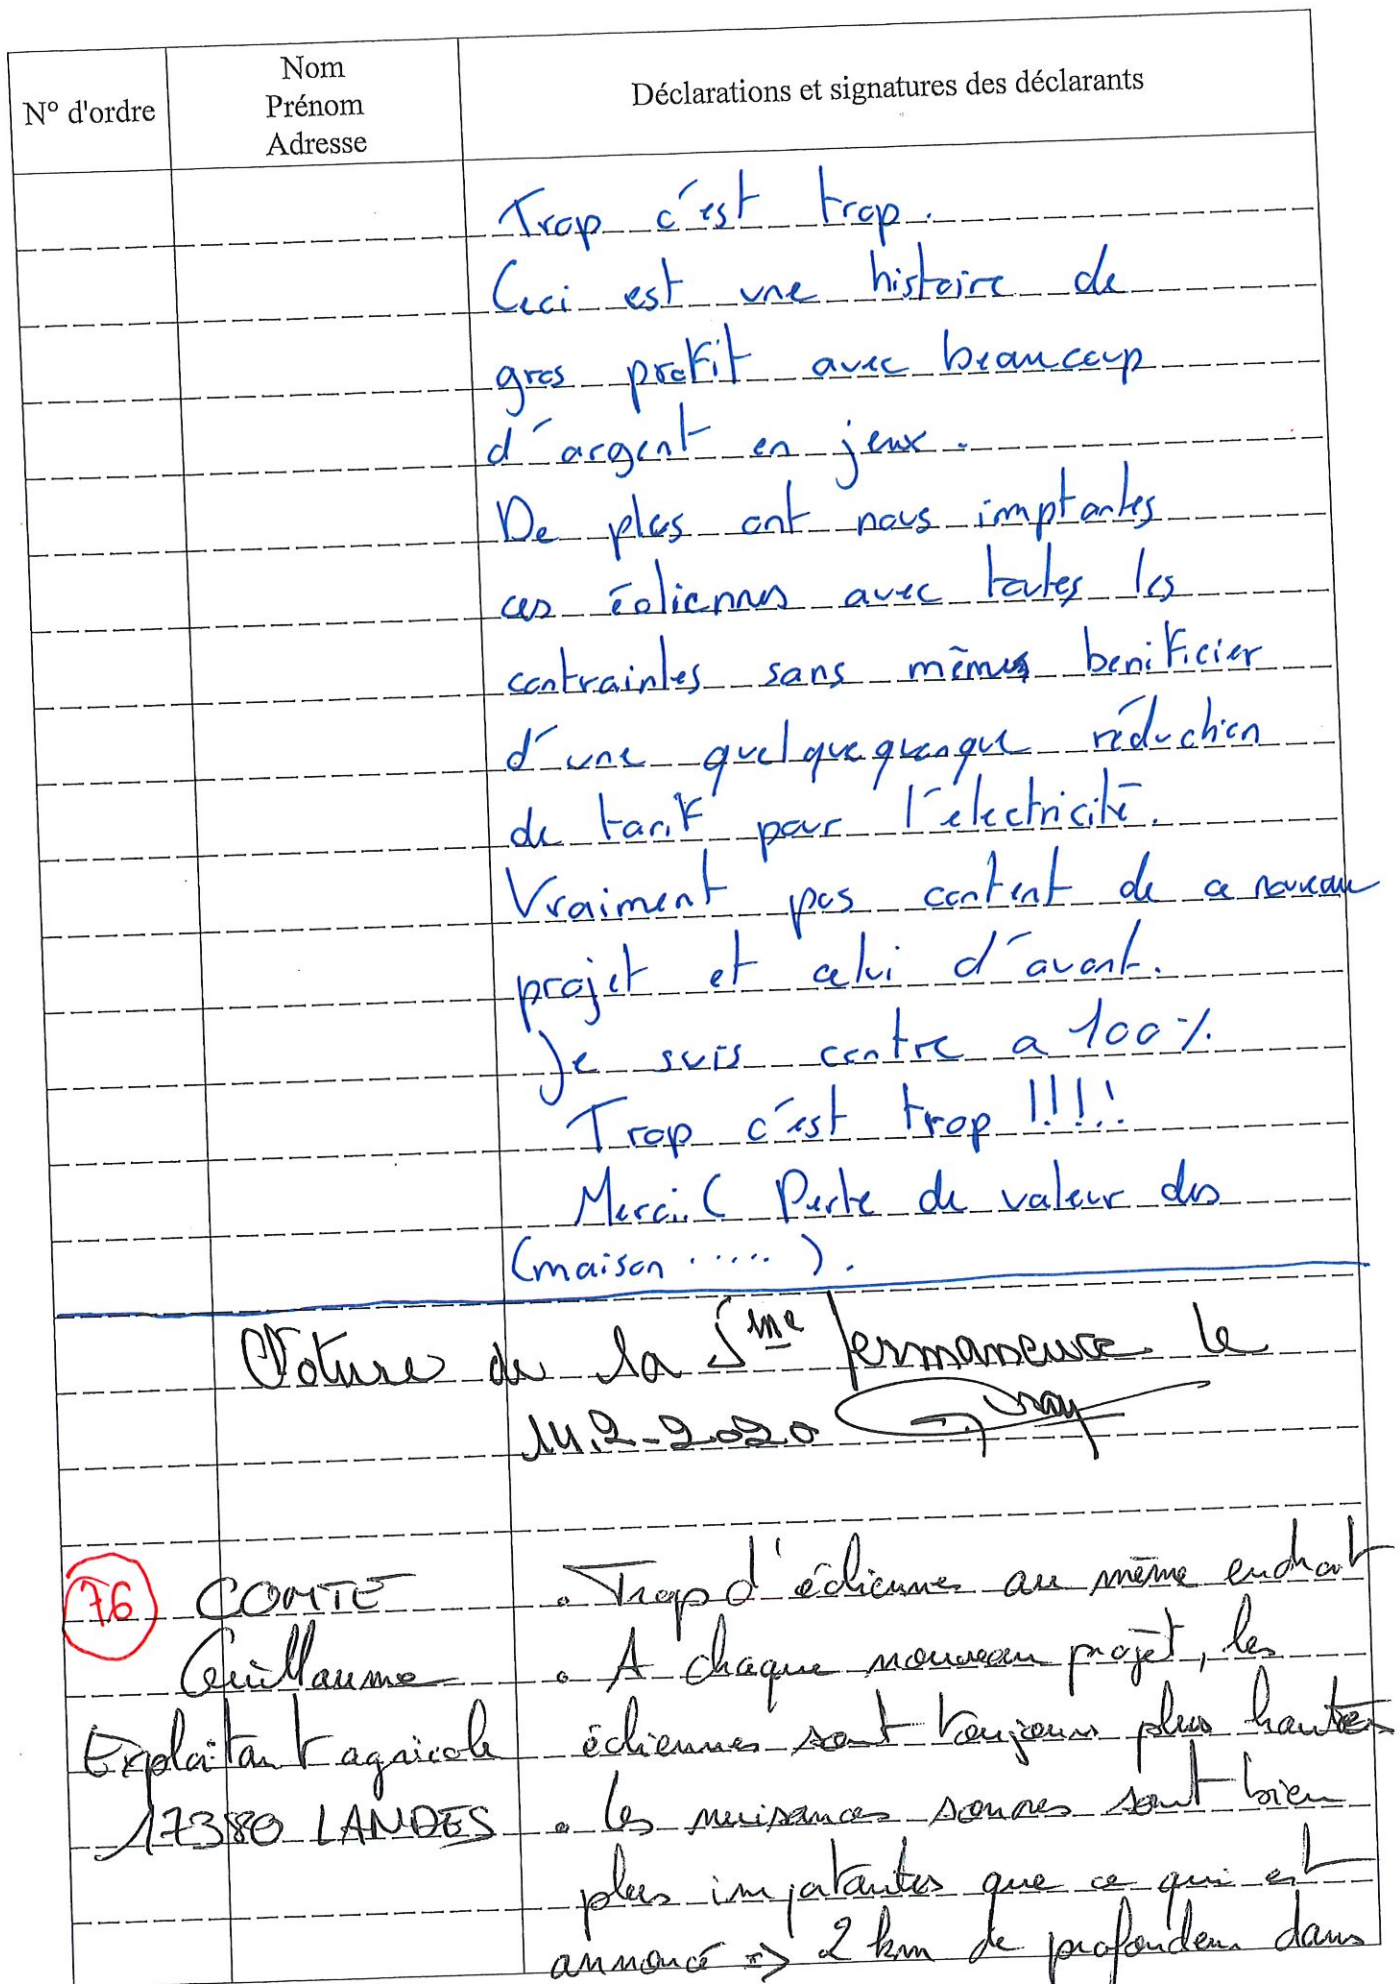 N° d'ordre
Nom
Prénom
Adresse
Déclarations et signatures des déclarants
Trop c'est trop.
Ceci est une histoire de
gros profit avec beaucoup
d'argent en jeux.
De plus ont nous implantes
ces éoliennes avec toutes les
contraintes sans mêmes benificier
d'une quelquequonque réduction
de tarif pour l'électricité.
Vraiment pas content de ce nouveau
projet et celui d'avant.
Je suis contre a 100%
Trop c'est trop !!!!
Merci. ( Perte de valeur des
(maison ..... ).
Cloture de la 5me permanence le
14.2-2020
76
COMTE
Guillaume
Exploitant agricole
17380 LANDES
. Trop d'éoliennes au même endroit
. A chaque nouveau projet, les
éoliennes sont toujours plus hautes
. les nuisances sonores sont bien
plus importantes que ce qui est
annoncé => 2 km de profondeur dans